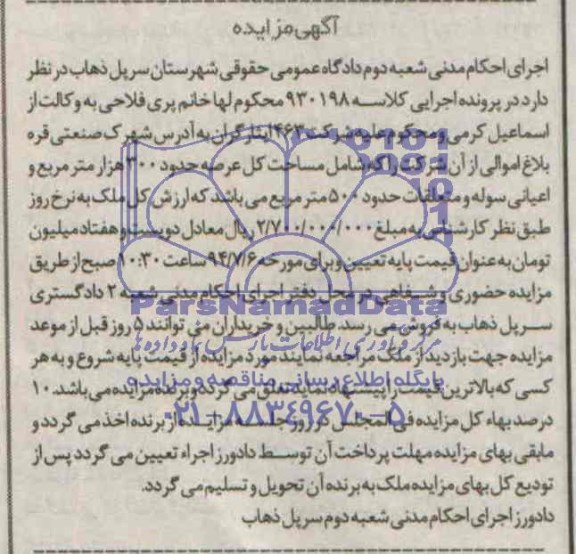 آگهی مزایده
اجرای احکام مدنی شعبه دوم دادگاه عمومی حقوقی شهرستان سرپل ذهاب در نظر
دارد در پرونده اجرایی کلاسه ۹۳۰۱۹۸ محکوم لها خانم پری فلاحی به وکالت از
اسماعیل کرمی و محکوم علیه شرکت ۴۶۳ ایثارگران به آدرس شهرک صنعتی قره
بلاغ اموالی از آن شرکت را که شامل مساحت کل عرصه حدود ۳۰۰ هزار متر مربع و
اعیانی سوله و متعلقات حدود ۵۰۰ متر مربع می باشد که ارزش کل ملک به نرخ روز
طبق نظر کارشناس به مبلغ ۲/۷۰۰/۰۰۰/۰۰۰ ریال معادل دویست و هفتاد میلیون
تومان به عنوان قیمت پایه تعیین و برای مورخه ۹۴/۷/۶ ساعت ۱۰:۳۰ صبح از طریق
مزایده حضوری و شفاهی در محل دفتر اجرای احکام مدنی شعبه ۲ دادگستری
ParsNamadData
سرپل ذهاب به فروش می رسد. طالبین و خریداران می توانند ۵ روز قبل از موعد
مزایده جهت بازدید از ملک مراجعه نمایند مورد مزایده از قیمت پایه شروع و به هر
کسی که بالاترین قیمت را پیشنهاد نماید تعلق می گردد و برنده مزایده می باشد. ۱۰
پایگاه اطلاع رسانی مناقصه و مزایده
درصد بهاء کل مزایده فی المجلس در روز جلسه مزایده از برنده اخذ می گردد و
۰۲۱-۸۸۳۴۹۶۷۰-۵
مابقی بهای مزایده مهلت پرداخت آن توسط دادورز اجراء تعیین می گردد پس از
تودیع کل بهای مزایده ملک به برنده آن تحویل و تسلیم می گردد.
دادورز اجرای احکام مدنی شعبه دوم سرپل ذهاب